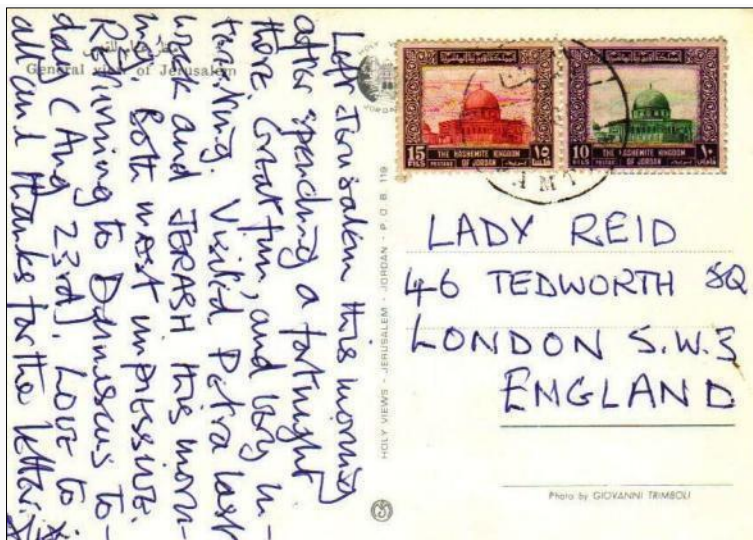 General view of Jerusalem
Left Jerusalem this morning
after spending a fortnight
there. Great fun, and very in-
teresting. Visited Petra last
week and JERASH this morn-
ing. Both most impressive.
Returning to Damascus to-
day (Aug 23rd). Love to
all and thanks for the letter.
HOLY VIEWS - JERUSALEM - JORDAN - P.O.B. 119
15
FILS
POSTAGE
THE HASHEMITE KINGDOM
OF JORDAN
١٥
10
FILS
POSTAGE
THE HASHEMITE KINGDOM
OF JORDAN
١٠
LADY REID
46 TEDWORTH SQ
LONDON S.W.3
ENGLAND
Photo by GIOVANNI TRIMBOLI